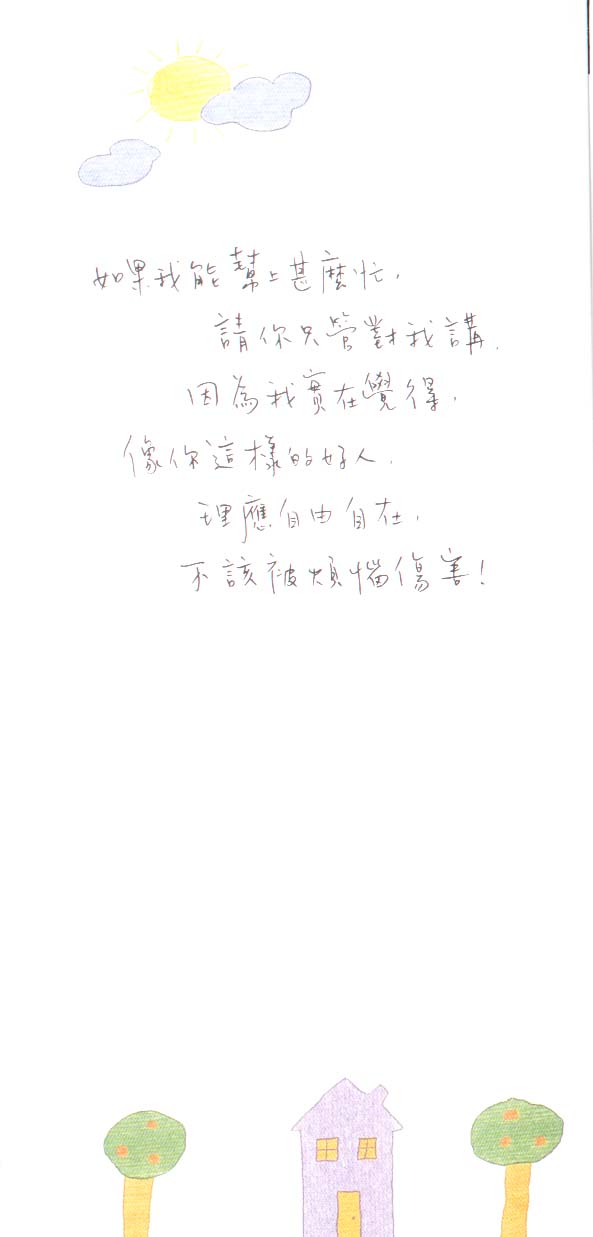 如果我能幫上甚麼忙，
請你只管對我講．
因為我實在覺得，
像你這樣的好人．
理應自由自在，
不該被煩惱傷害！